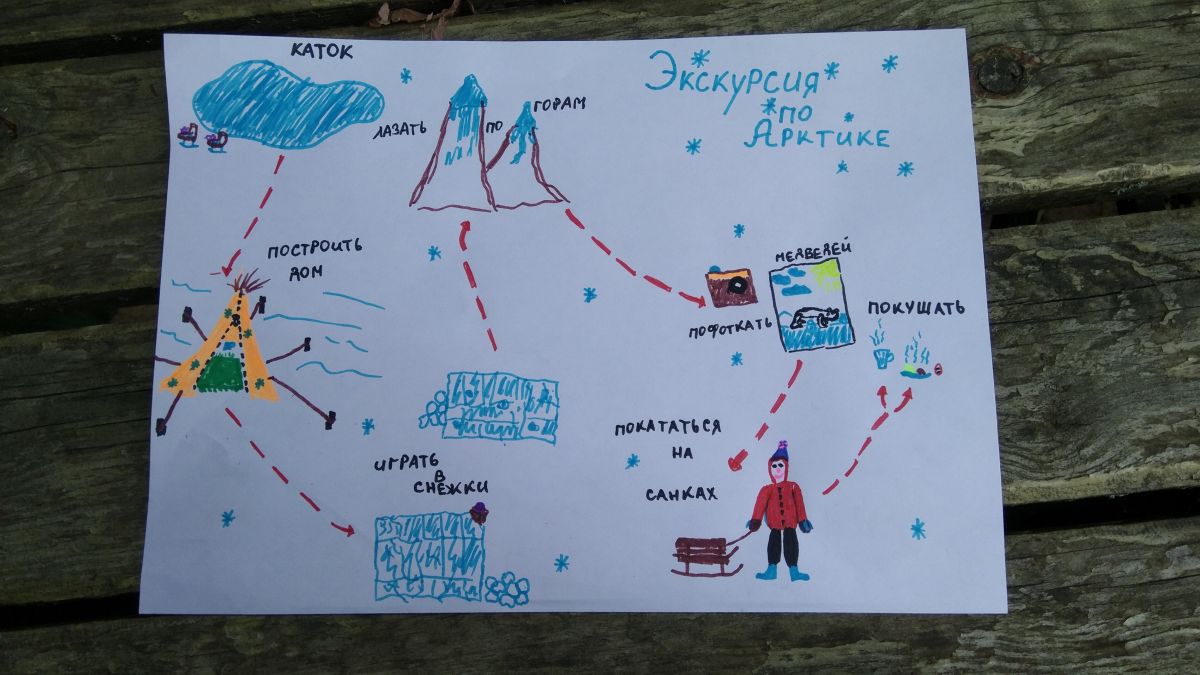 Экскурсия
по
Арктике
КАТОК
ПОСТРОИТЬ
ДОМ
ИГРАТЬ
В
СНЕЖКИ
ЛАЗАТЬ ПО ГОРАМ
ПОФОТКАТЬ
МЕДВЕДЕЙ
ПОКАТАТЬСЯ
НА
САНКАХ
ПОКУШАТЬ